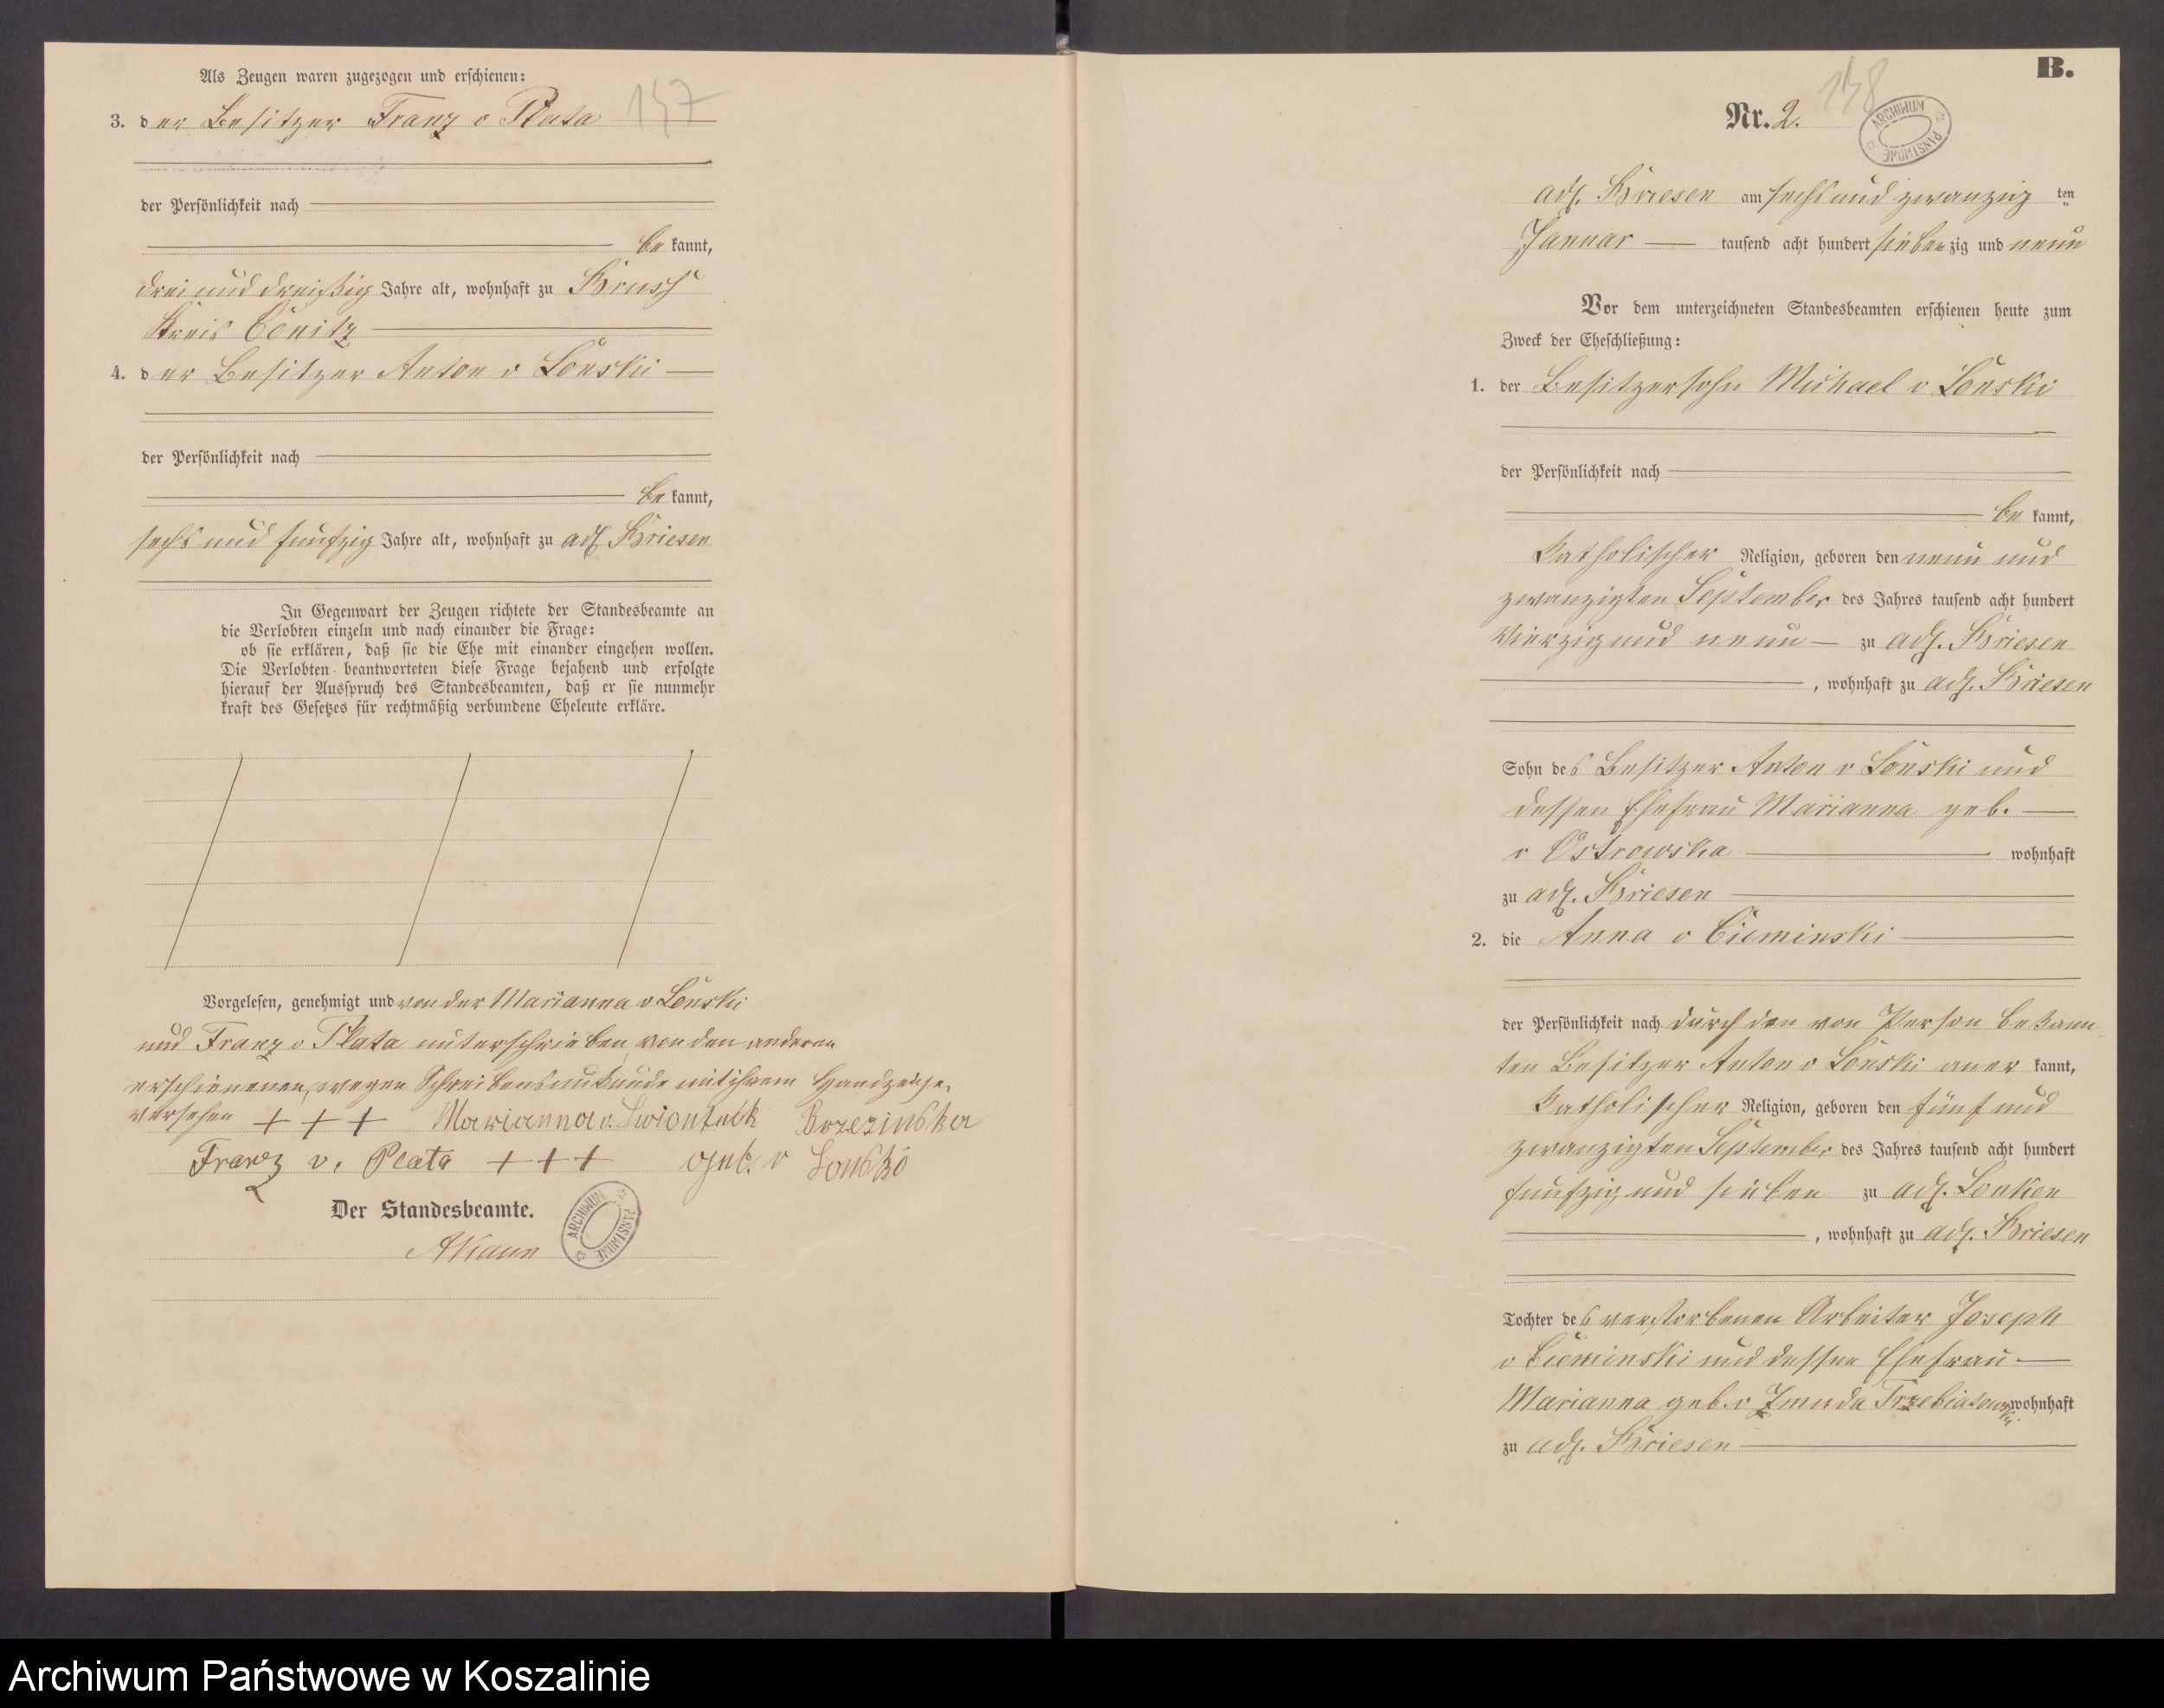 Als Zeugen waren zugezogen und erschienen:
147
3. der Besitzer Franz v Plata
der Persönlichkeit nach
be kannt,
drei und dreißig Jahre alt, wohnhaft zu Bruss
Kreis Conitz
4. der Besitzer Anton v Lonski
der Persönlichkeit nach
be kannt,
sechs und funfzig Jahre alt, wohnhaft zu adl Briesen
In Gegenwart der Zeugen richtete der Standesbeamte an
die Verlobten einzeln und nach einander die Frage:
ob sie erklären, daß sie die Ehe mit einander eingehen wollen.
Die Verlobten beantworteten diese Frage bejahend und erfolgte
hierauf der Ausspruch des Standesbeamten, daß er sie nunmehr
kraft des Gesetzes für rechtmäßig verbundene Eheleute erkläre.
Vorgelesen, genehmigt und von der Marianna v Lonski
und Franz v Plata unterschrieben von den anderen
erschienenen, wegen Schreibensunkunde mit ihrem Handzeichen
versehen + + + Marianna v. Brzezinska
Franz v. Plata + + + geb. v Lonski
Der Standesbeamte.
ARCHIWUM PAŃSTWOWE
B.
148
Nr. 2.
ARCHIWUM PAŃSTWOWE
adl. Briesen am sechs und zwanzig ten
Januar tausend acht hundert siebenzig und neun
Vor dem unterzeichneten Standesbeamten erschienen heute zum
Zweck der Eheschließung:
1. der Besitzersohn Michael v Lonski
der Persönlichkeit nach
be kannt,
Katholischer Religion, geboren den neun und
zwanzigten September des Jahres tausend acht hundert
Vierzig und neun zu adl. Briesen
, wohnhaft zu adl. Briesen
Sohn des Besitzer Anton v Lonski und
dessen Ehefrau Marianna geb.
v Ostrowska wohnhaft
zu adl. Briesen
2. die Anna v Cieminski
der Persönlichkeit nach durch den von Person bekann
ten Besitzer Anton v Lonski aner kannt,
Katholischer Religion, geboren den fünf und
zwanzigten September des Jahres tausend acht hundert
funfzig und sieben zu adl. Lonken
, wohnhaft zu adl. Briesen
Tochter des verstorbenen Arbeiter Joseph
v Cieminski und dessen Ehefrau
Marianna geb. v Zmuda Trzebiatowski wohnhaft
zu adl. Briesen
Archiwum Państwowe w Koszalinie